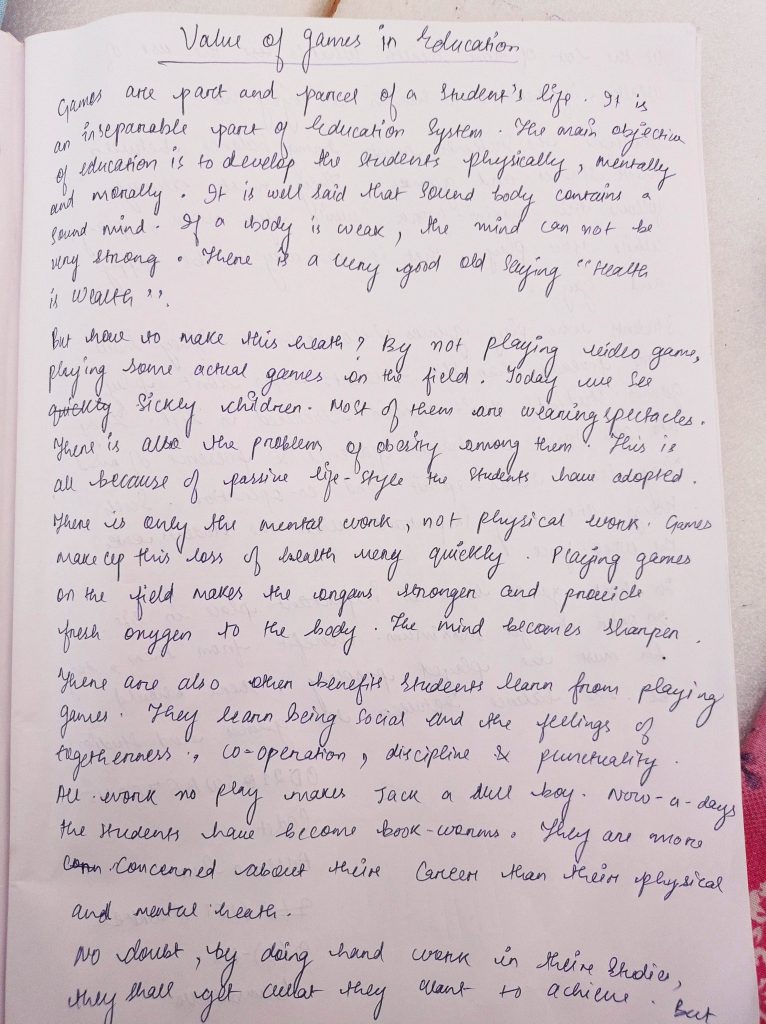 Value of games in Education
Games are part and parcel of a student's life. It is
an inseparable part of Education System. The main objective
of education is to develop the students physically, mentally
and morally. It is well said that sound body contains a
sound mind. If a body is weak, the mind can not be
very strong. There is a very good old saying "Health
is Wealth".
But how to make this heath? By not playing video game,
playing some actual games on the field. Today we see
quickly sickly children. Most of them are wearing spectacles.
There is also the problem of obesity among them. This is
all because of passive life-style the students have adopted.
There is only the mental work, not physical work. Games
make up this loss of health very quickly. Playing games
on the field makes the organs stronger and provide
fresh oxygen to the body. The mind becomes sharper.
There are also other benefits students learn from playing
games. They learn being social and the feelings of
togetherness, co-operation, discipline & punctuality.
All work no play makes Jack a dull boy. Now-a-days
the students have become book-worms. They are more
concerned about their career than their physical
and mental heath.
No doubt, by doing hard work in their studies,
they shall get what they want to achieve. But